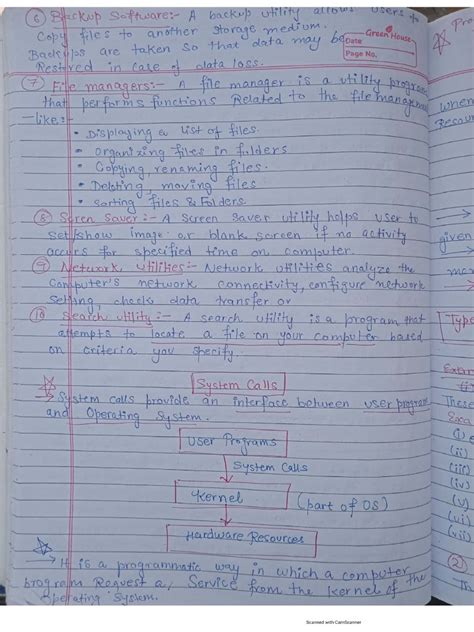 ⑥ Backup Software:- A backup utility allows users to
Copy files to another storage medium.
Green House
Date
Page No.
Backups are taken so that data may be
Restored in case of data loss.
⑦ File managers:- A file manager is a utility program
that performs functions Related to the file management
-like:-
• Displaying a list of files.
• Organizing files in folders
• Copying, renaming files.
• Deleting, moving files
• Sorting files & Folders.
⑧ Scren Saver:- A Screen Saver utility helps user to
set/show image or blank screen if no activity
occurs for specified time on computer.
⑨ Network utilities:- Network utilities analyze the
Computer's network connectivity, configure network
Setting, check data transfer or
⑩ Search utility:- A search utility is a program that
attempts to locate a file on your computer based
on criteria you specify.
System Calls
→ System calls provide an interface between user program
and Operating System.
User Programs
System Calls
Kernel (part of OS)
Hardware Resources
→ It is a programmatic way in which a computer
program Request a, Service from the kernel of the
Operating System.
given
Type
These
(i)
(ii)
(iii)
(iv)
(v)
(vi)
(vii)
②
Scanned with CamScanner